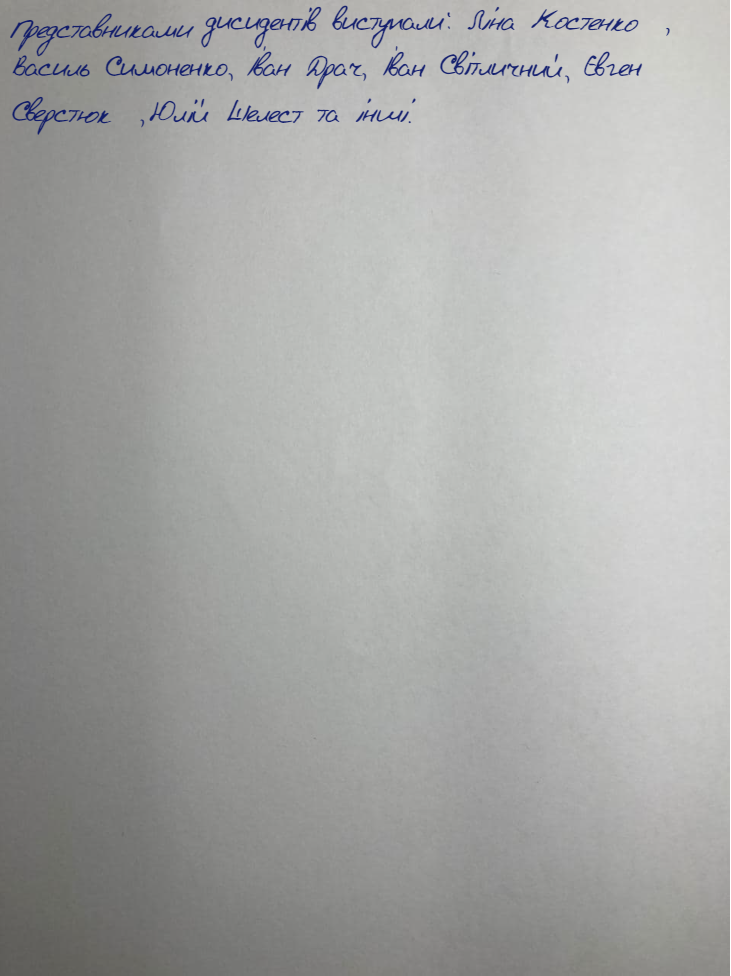 Представниками дисидентів виступали: Ліна Костенко ,
Василь Симоненко, Іван Драч, Іван Світличний, Євген
Сверстюк , Юлій Шелест та інші.